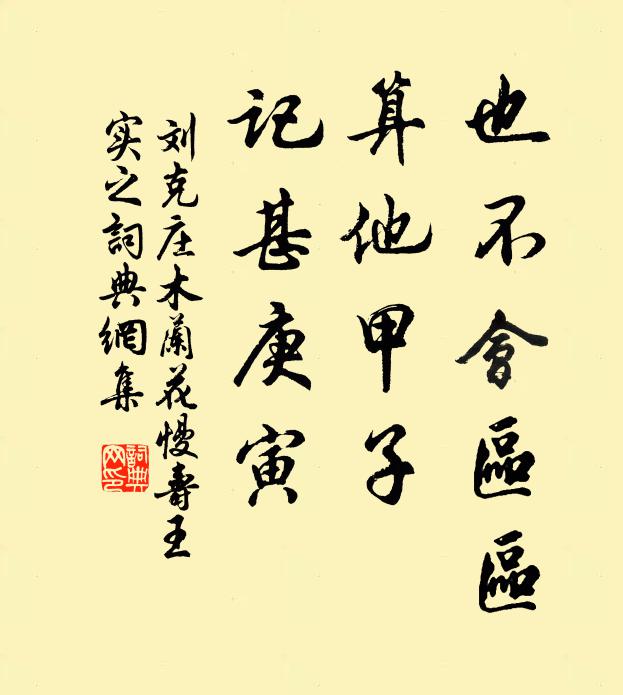 也不會區區
算他甲子
記甚庚寅
刘克庄木蘭花慢壽王
实之詞典網集
詞典
网印